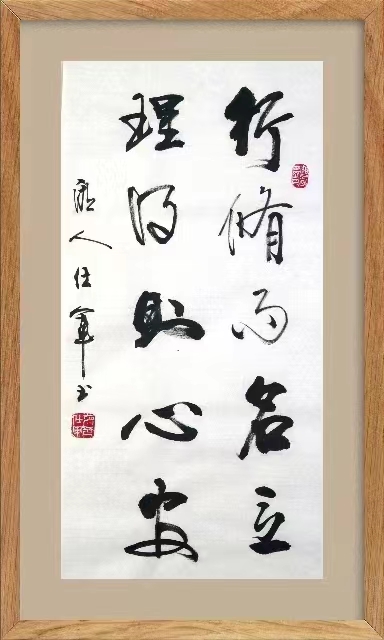 行脩而名立
理得则心安
人任軍书